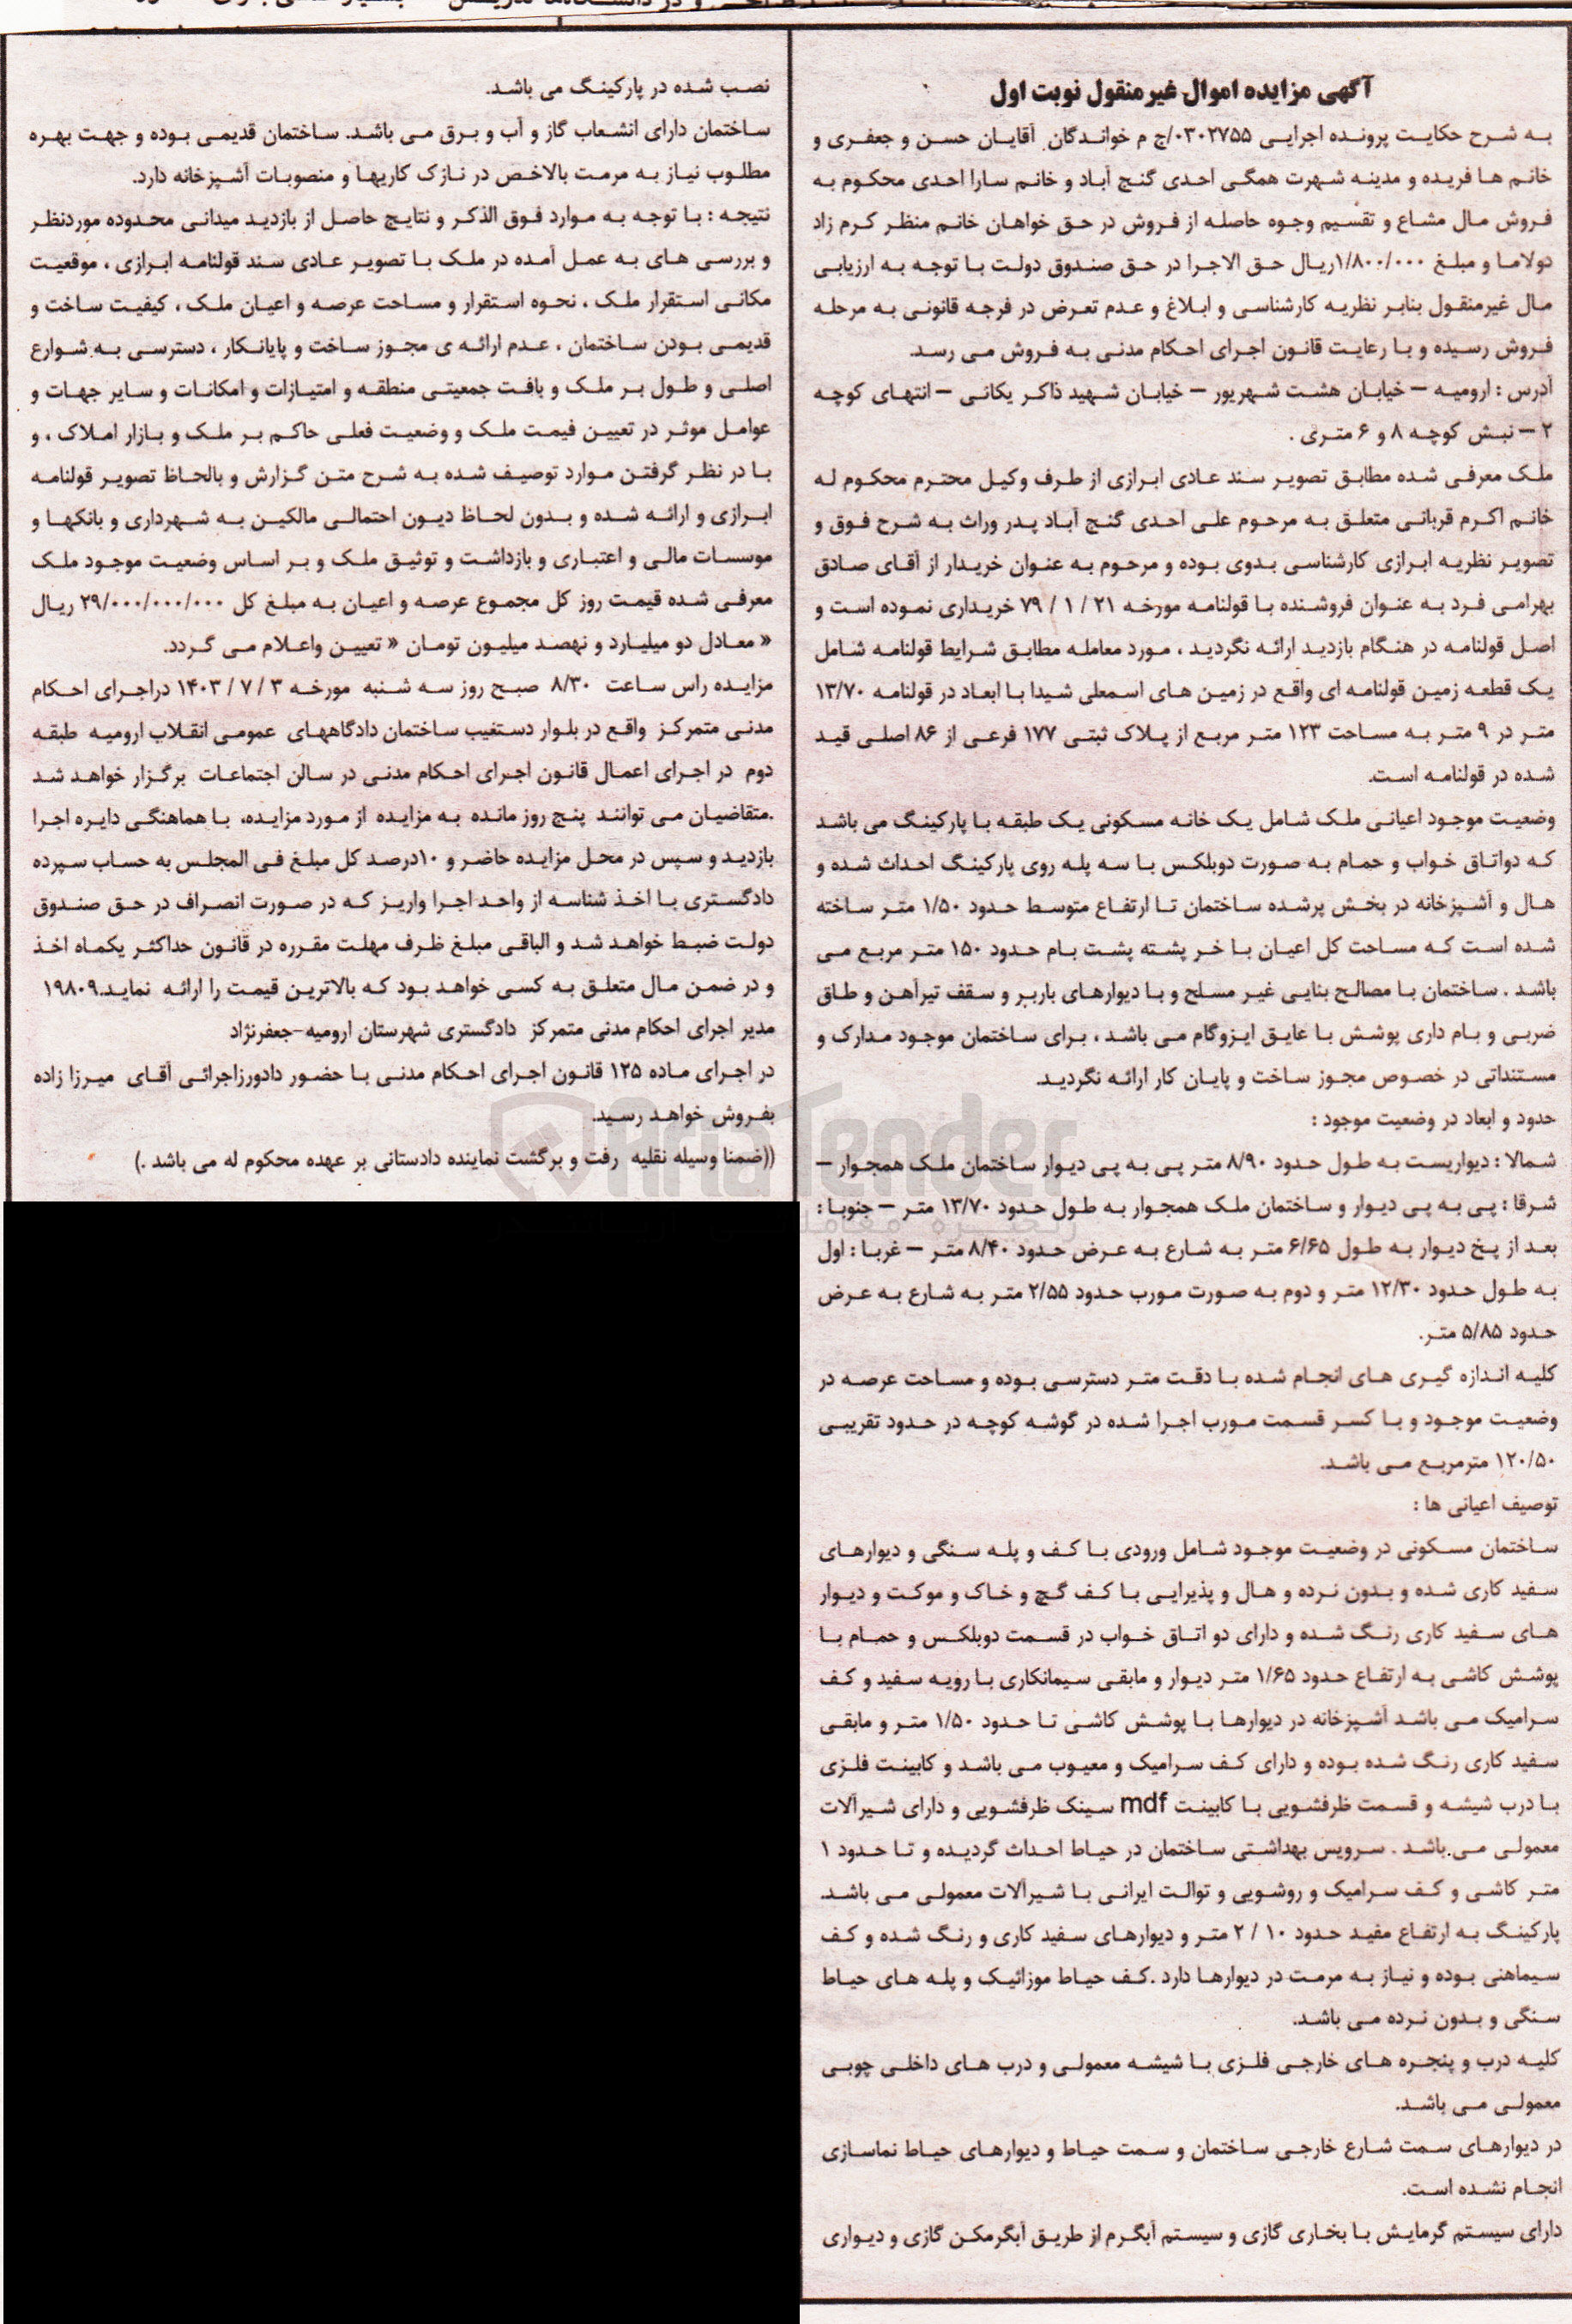 آگهی مزایده اموال غیرمنقول نوبت اول
به شرح حکایت پرونده اجرایی ۰۳۰۲۷۵۵/ج م خواندگان آقایان حسن و جعفری و
خانم ها فریده و مدینه شهرت همگی احدی گنج آباد و خانم سارا احدی محکوم به
فروش مال مشاع و تقسیم وجوه حاصله از فروش در حق خواهان خانم منظر کرم زاد
دولاما و مبلغ ۱/۸۰۰/۰۰۰ریال حق الاجرا در حق صندوق دولت با توجه به ارزیابی
مال غیرمنقول بنابر نظریه کارشناسی و ابلاغ و عدم تعرض در فرجه قانونی به مرحله
فروش رسیده و با رعایت قانون اجرای احکام مدنی به فروش می رسد.
آدرس : ارومیه – خیابان هشت شهریور – خیابان شهید ذاکر یکانی – انتهای کوچه
۲ – نبش کوچه ۸ و ۶ متری .
ملک معرفی شده مطابق تصویر سند عادی ابرازی از طرف وکیل محترم محکوم له
خانم اکرم قربانی متعلق به مرحوم علی احدی گنج آباد پدر وراث به شرح فوق و
تصویر نظریه ابرازی کارشناسی بدوی بوده و مرحوم به عنوان خریدار از آقای صادق
بهرامی فرد به عنوان فروشنده با قولنامه مورخه ۲۱ / ۱ / ۷۹ خریداری نموده است و
اصل قولنامه در هنگام بازدید ارائه نگردید ، مورد معامله مطابق شرایط قولنامه شامل
یک قطعه زمین قولنامه ای واقع در زمین های اسمعلی شیدا با ابعاد در قولنامه ۱۳/۷۰
متر در ۹ متر به مساحت ۱۲۳ متر مربع از پلاک ثبتی ۱۷۷ فرعی از ۸۶ اصلی قید
شده در قولنامه است.
وضعیت موجود اعیانی ملک شامل یک خانه مسکونی یک طبقه با پارکینگ می باشد
که دواتاق خواب و حمام به صورت دوبلکس با سه پله روی پارکینگ احداث شده و
هال و آشپزخانه در بخش پرشده ساختمان تا ارتفاع متوسط حدود ۱/۵۰ متر ساخته
شده است که مساحت کل اعیان با خر پشته پشت بام حدود ۱۵۰ متر مربع می
باشد . ساختمان با مصالح بنایی غیر مسلح و با دیوارهای باربر و سقف تیرآهن و طاق
ضربی و بام داری پوشش با عایق ایزوگام می باشد ، برای ساختمان موجود مدارک و
مستنداتی در خصوص مجوز ساخت و پایان کار ارائه نگردید.
حدود و ابعاد در وضعیت موجود :
شمالا : دیواریست به طول حدود ۸/۹۰ متر پی به پی دیوار ساختمان ملک همجوار –
شرقا : پی به پی دیوار و ساختمان ملک همجوار به طول حدود ۱۳/۷۰ متر – جنوبا :
بعد از پخ دیوار به طول ۶/۶۵ متر به شارع به عرض حدود ۸/۴۰ متر – غربا : اول
به طول حدود ۱۲/۳۰ متر و دوم به صورت مورب حدود ۲/۵۵ متر به شارع به عرض
حدود ۵/۸۵ متر.
کلیه اندازه گیری های انجام شده با دقت متر دسترسی بوده و مساحت عرصه در
وضعیت موجود و با کسر قسمت مورب اجرا شده در گوشه کوچه در حدود تقریبی
۱۲۰/۵۰ مترمربع می باشد.
توصیف اعیانی ها :
ساختمان مسکونی در وضعیت موجود شامل ورودی با کف و پله سنگی و دیوارهای
سفید کاری شده و بدون نرده و هال و پذیرایی با کف گچ و خاک و موکت و دیوار
های سفید کاری رنگ شده و دارای دو اتاق خواب در قسمت دوبلکس و حمام با
پوشش کاشی به ارتفاع حدود ۱/۶۵ متر دیوار و مابقی سیمانکاری با رویه سفید و کف
سرامیک می باشد آشپزخانه در دیوارها با پوشش کاشی تا حدود ۱/۵۰ متر و مابقی
سفید کاری رنگ شده بوده و دارای کف سرامیک و معیوب می باشد و کابینت فلزی
با درب شیشه و قسمت ظرفشویی با کابینت mdf سینک ظرفشویی و دارای شیرآلات
معمولی می باشد . سرویس بهداشتی ساختمان در حیاط احداث گردیده و تا حدود ۱
متر کاشی و کف سرامیک و روشویی و توالت ایرانی با شیرآلات معمولی می باشد.
پارکینگ به ارتفاع مفید حدود ۱۰ / ۲ متر و دیوارهای سفید کاری و رنگ شده و کف
سیماهنی بوده و نیاز به مرمت در دیوارها دارد .کف حیاط موزائیک و پله های حیاط
سنگی و بدون نرده می باشد.
کلیه درب و پنجره های خارجی فلزی با شیشه معمولی و درب های داخلی چوبی
معمولی می باشد.
در دیوارهای سمت شارع خارجی ساختمان و سمت حیاط و دیوارهای حیاط نماسازی
انجام نشده است.
دارای سیستم گرمایش با بخاری گازی و سیستم آبگرم از طریق آبگرمکن گازی و دیواری
نصب شده در پارکینگ می باشد.
ساختمان دارای انشعاب گاز و آب و برق می باشد. ساختمان قدیمی بوده و جهت بهره
مطلوب نیاز به مرمت بالاخص در نازک کاریها و منصوبات آشپزخانه دارد.
نتیجه : با توجه به موارد فوق الذکر و نتایج حاصل از بازدید میدانی محدوده موردنظر
و بررسی های به عمل آمده در ملک با تصویر عادی سند قولنامه ابرازی ، موقعیت
مکانی استقرار ملک ، نحوه استقرار و مساحت عرصه و اعیان ملک ، کیفیت ساخت و
قدیمی بودن ساختمان ، عدم ارائه ی مجوز ساخت و پایانکار ، دسترسی به شوارع
اصلی و طول بر ملک و بافت جمعیتی منطقه و امتیازات و امکانات و سایر جهات و
عوامل موثر در تعیین قیمت ملک و وضعیت فعلی حاکم بر ملک و بازار املاک ، و
با در نظر گرفتن موارد توصیف شده به شرح متن گزارش و بالحاظ تصویر قولنامه
ابرازی و ارائه شده و بدون لحاظ دیون احتمالی مالکین به شهرداری و بانکها و
موسسات مالی و اعتباری و بازداشت و توثیق ملک و بر اساس وضعیت موجود ملک
معرفی شده قیمت روز کل مجموع عرصه و اعیان به مبلغ کل ۲۹/۰۰۰/۰۰۰/۰۰۰ ریال
« معادل دو میلیارد و نهصد میلیون تومان « تعیین واعلام می گردد.
مزایده راس ساعت ۸/۳۰ صبح روز سه شنبه مورخه ۳ / ۷ / ۱۴۰۳ دراجرای احکام
مدنی متمرکز واقع در بلوار دستغیب ساختمان دادگاههای عمومی انقلاب ارومیه طبقه
دوم در اجرای اعمال قانون اجرای احکام مدنی در سالن اجتماعات برگزار خواهد شد
.متقاضیان می توانند پنج روز مانده به مزایده از مورد مزایده، با هماهنگی دایره اجرا
بازدید و سپس در محل مزایده حاضر و ۱۰درصد کل مبلغ فی المجلس به حساب سپرده
دادگستری با اخذ شناسه از واحد اجرا واریز که در صورت انصراف در حق صندوق
دولت ضبط خواهد شد و الباقی مبلغ ظرف مهلت مقرره در قانون حداکثر یکماه اخذ
و در ضمن مال متعلق به کسی خواهد بود که بالاترین قیمت را ارائه نماید.۱۹۸۰۹
مدیر اجرای احکام مدنی متمرکز دادگستری شهرستان ارومیه-جعفرنژاد
در اجرای ماده ۱۲۵ قانون اجرای احکام مدنی با حضور دادورزاجرائی آقای میرزا زاده
بفروش خواهد رسید.
((ضمنا وسیله نقلیه رفت و برگشت نماینده دادستانی بر عهده محکوم له می باشد .)
AriaTender